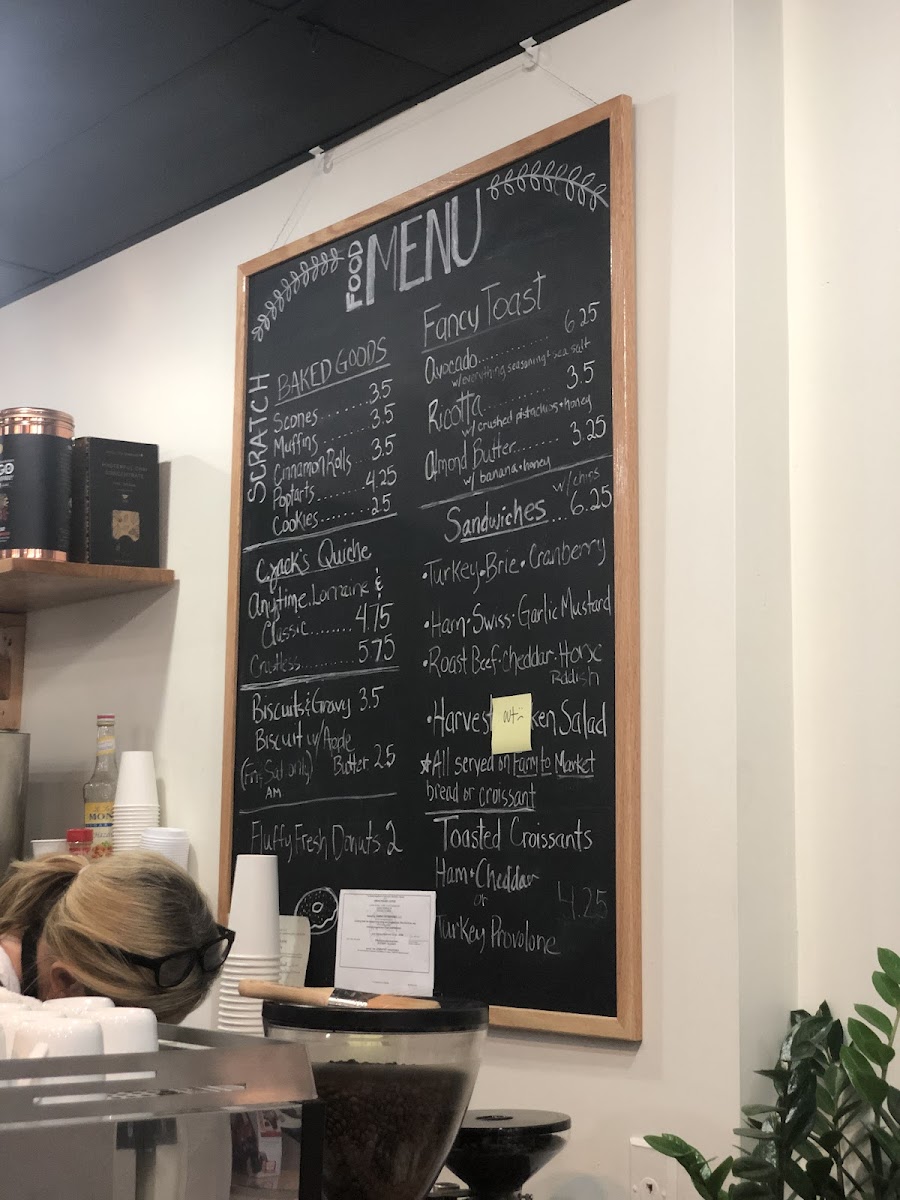 FOOD MENU
SCRATCH
BAKED GOODS
Scones........3.5
Muffins.......3.5
Cinnamon Rolls..3.5
Poptarts......4.25
Cookies........2.5
C.jack's Quiche
Anytime. Lorraine &
Classic........4.75
Crustless..........5.75
Biscuits & Gravy 3.5
Biscuit w/ Apple
(Fri, Sat only) Butter 2.5
AM
Fluffy Fresh Donuts 2
Fancy Toast
Avocado............6.25
w/ everything seasoning + sea salt
Ricotta............3.5
w/ crushed pistachios + honey
Almond Butter.......3.25
w/ banana + honey
w/ chips
Sandwiches...6.25
•Turkey•Brie•Cranberry
•Ham•Swiss•Garlic Mustard
•Roast Beef•Cheddar•Horse
Rddish
•Harvest out ken Salad
All served on Farm to Market
bread or croissant
Toasted Croissants
Ham + Cheddar
or 4.25
Turkey Provolone
GO
MON